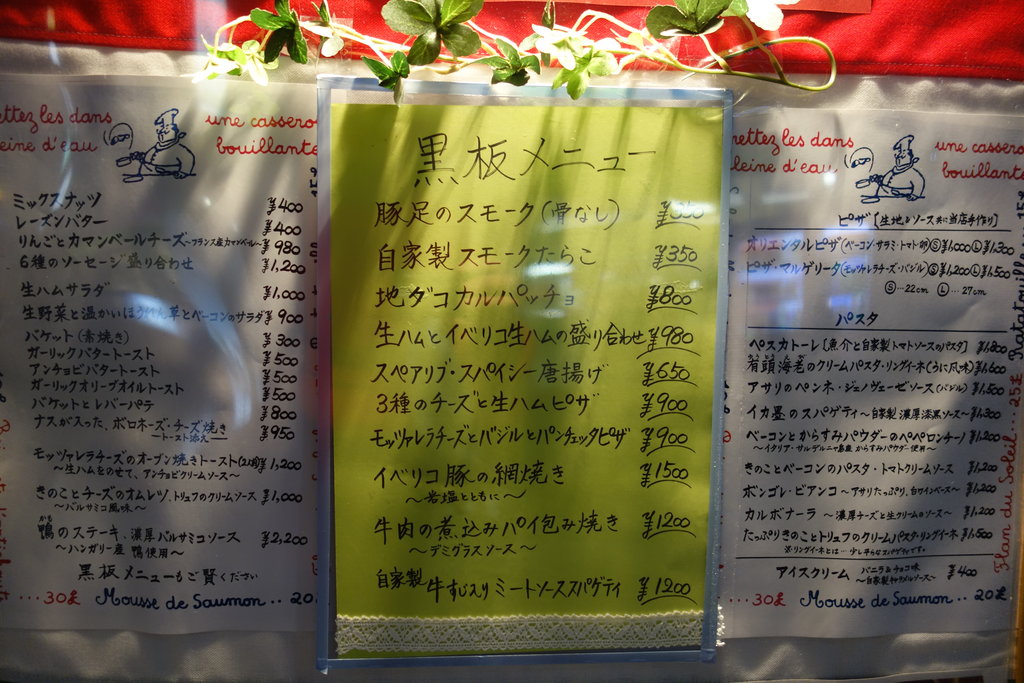 ettez les dans
une cassero
eine d'eau
bouillante
ミックスナッツ ¥400
レーズンバター ¥400
りんごとカマンベールチーズ〜フランス産カマンベール〜 ¥980
6種のソーセージ盛り合わせ ¥1,200
生ハムサラダ ¥1,000
生野菜と温かいほうれん草とベーコンのサラダ ¥900
バケット(素焼き) ¥300
ガーリックバタートースト ¥500
アンチョビバタートースト ¥500
ガーリックオリーブオイルトースト ¥500
バケットとレバーパテ ¥800
ナスが入った、ボロネーズ・チーズ焼き ¥950
トースト添え
モッツァレラチーズのオーブン焼きトースト(2枚) ¥1,200
〜生ハムをのせて、アンチョビクリームソース〜
きのことチーズのオムレツ、トリュフのクリームソース ¥1,000
〜バルサミコ風味〜
かも
鴨のステーキ、濃厚バルサミコソース ¥2,200
〜ハンガリー産 鴨使用〜
黒板メニューもご覧ください
...30£ Mousse de Saumon.. 20
黒板メニュー
豚足のスモーク(骨なし)
自家製スモークたらこ ¥350
地ダコカルパッチョ ¥800
生ハムとイベリコ生ハムの盛り合わせ ¥980
スペアリブ・スパイシー唐揚げ ¥650
3種のチーズと生ハムピザ ¥900
モッツァレラチーズとバジルとパンチェッタピザ ¥900
イベリコ豚の網焼き ¥1500
〜岩塩とともに〜
牛肉の煮込みパイ包み焼き ¥1200
〜デミグラスソース〜
自家製牛すじ入りミートソーススパゲティ ¥1200
nettez les dans
une cassero
leine d'eau
bouillante
ピザ[生地&ソース共に当店手作り]
オリエンタルピザ(ベーコン・サラミ・トマト・卵) Ⓢ¥1,000 Ⓛ¥1,300
ピザ・マルゲリータ(モッツァレラチーズ・バジル) Ⓢ¥1,200 Ⓛ¥1,500
Ⓢ…22cm Ⓛ…27cm
パスタ
ペスカトーレ[魚介と自家製トマトソースのパスタ] ¥1,800
有頭海老のクリームパスタ・リングイーネ(うに風味) ¥1,600
アサリのペンネ・ジェノヴェーゼソース(バジル) ¥1,500
イカ墨のスパゲティ〜自家製 濃厚漆黒ソース〜 ¥1,300
ベーコンとからすみパウダーのペペロンチーノ ¥1,200
〜イタリア・サルデルニャ島産 からすみパウダー使用〜
きのことベーコンのパスタ・トマトクリームソース ¥1,200
ボンゴレ・ビアンコ〜アサリたっぷり、白ワインベース〜 ¥1,200
カルボナーラ 〜濃厚チーズと生クリームのソース〜 ¥1,200
たっぷりきのことトリュフのクリームパスタ・リングイーネ ¥1,500
※リングイーネとは…少し平らなスパゲティです。
アイスクリーム バニラ&チョコ味 ¥400
〜自家製キャラメルソース〜
...30£ Mousse de Saumon.. 20£
Flan du Soleil..25£